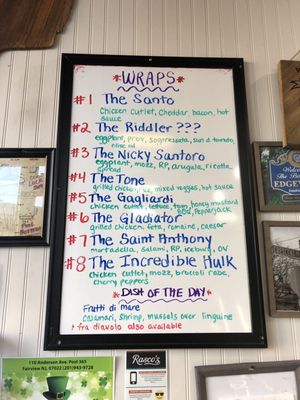 *WRAPS*
#1 The Santo
Chicken Cutlet, Cheddar, bacon, hot
sauce
#2 The Riddler ???
eggplant, prov, sopressata, sun d. tomato,
olive oil
#3 The Nicky Santoro
eggplant, mozz, RP, arugula, ricotta
spread
#4 The Tone
grilled chicken, mixed veggies, hot sauce
#5 The Gagliardi
chicken cutlet, lettuce, tom, honey mustard
Pepperjack
#6 The Gladiator
grilled chicken, feta, romaine, caesar
#7 The Saint Anthony
mortadella, salami, RP, iceburg, OV
#8 The Incredible Hulk
chicken cutlet, mozz, broccoli rabe,
cherry peppers
*DISH OF THE DAY*
Frutti di mare
calamari, shrimp, mussels over linguine
* fra diavolo also available
110 Anderson Ave. Post 365
Fairview NJ, 07022 (201)943-9728
Rasco's
Welcome
EDGE